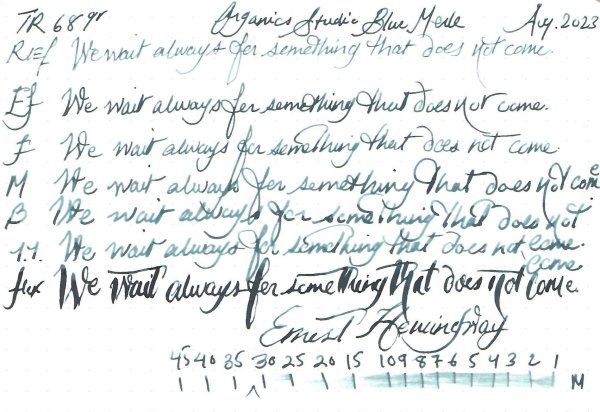 TR 68gr Organics Studio Blue Merle Aug. 2023
Ref We wait always for something that does not come.
Ef We wait always for something that does not come.
F We wait always for something that does not come.
M We wait always for something that does not come
B We wait always for something that does not
1.1. We wait always for something that does not come.
come
flex We wait always for something that does not come.
Ernest Hemingway
45 40 35 30 25 20 15 10 9 8 7 6 5 4 3 2 1
M